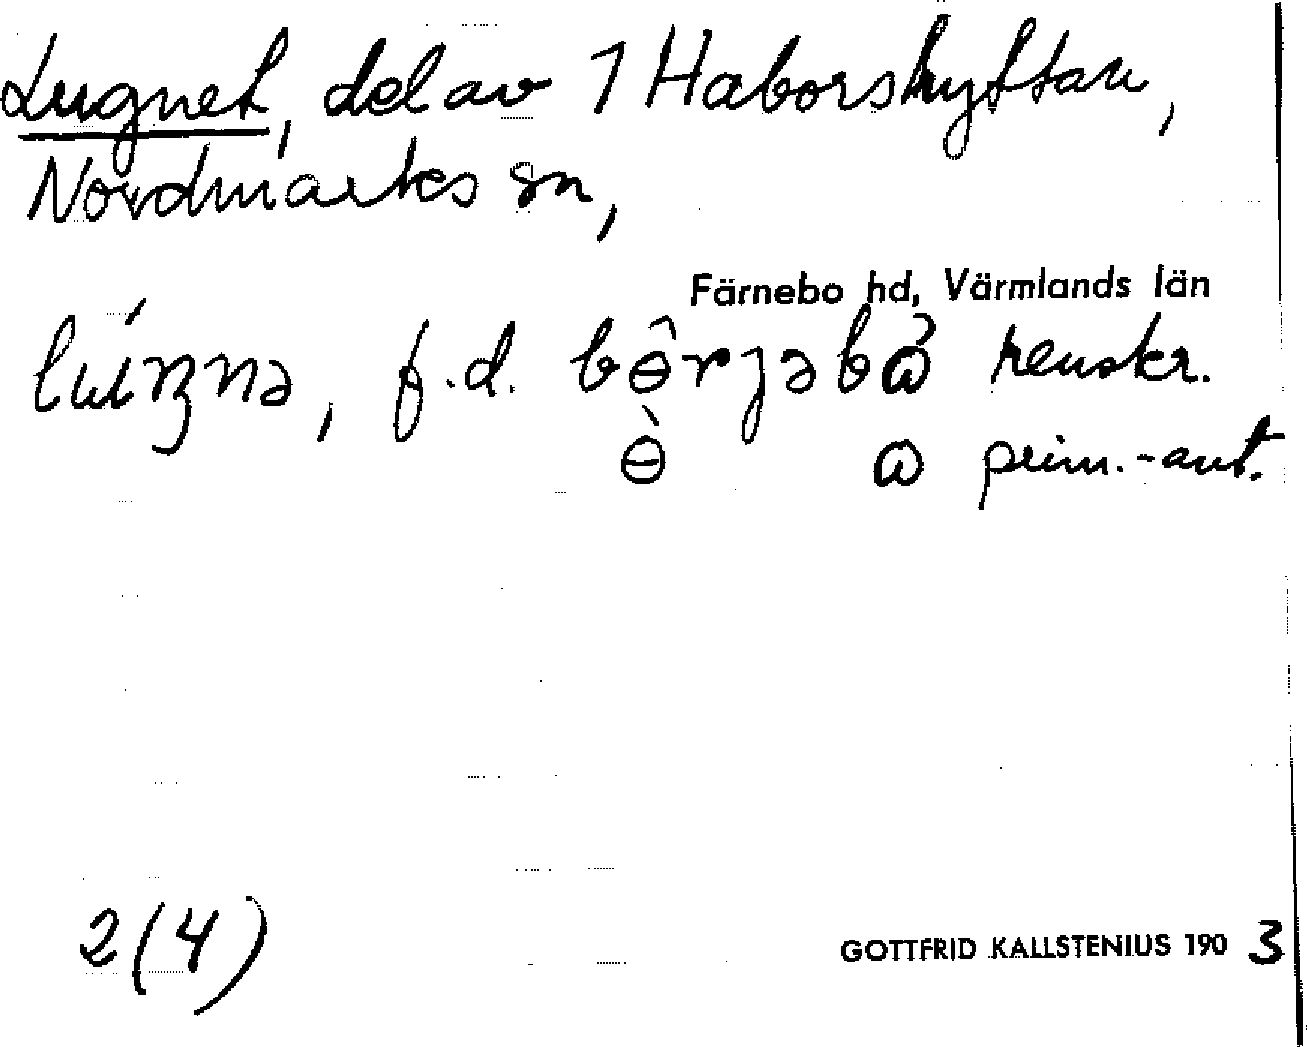 Lugnet, del av 1 Haborshyttan,
Nordmarks sn,
Färnebo hd, Värmlands län
f.d. renskr.
ɵ̀ prim.-ant.
2(4)
GOTTFRID KALLSTENIUS 1903